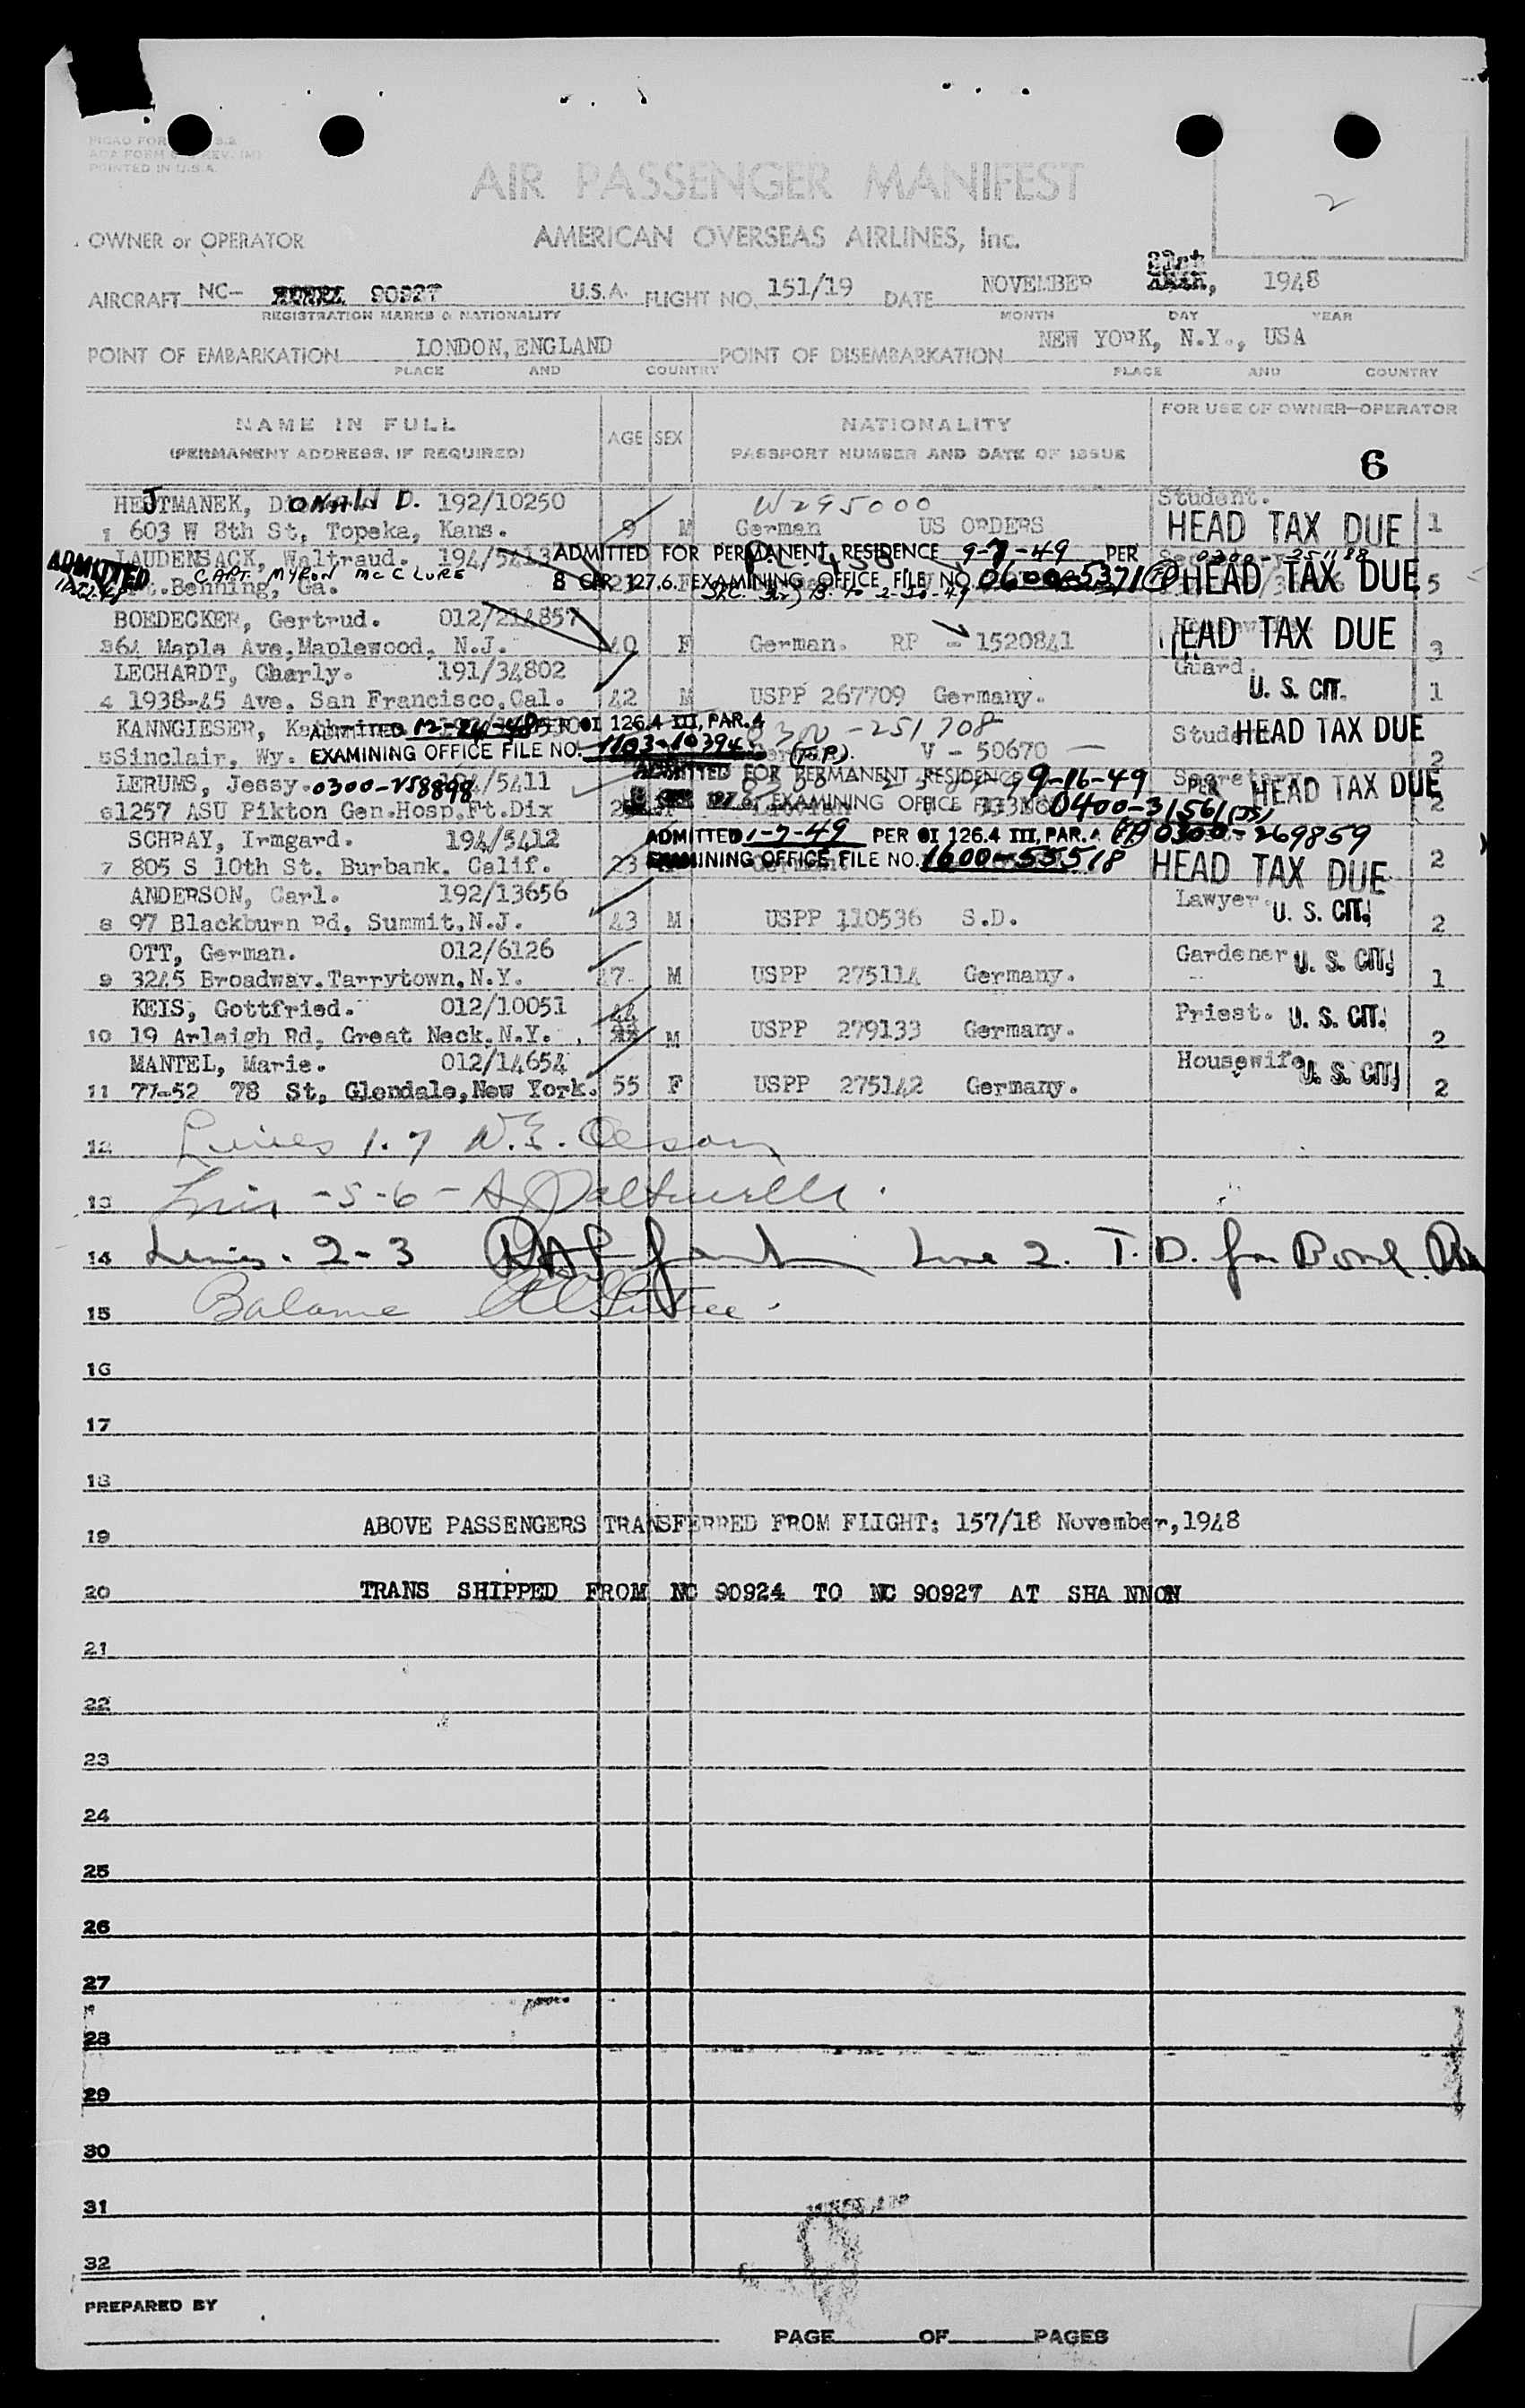 PRINTED IN U.S.A.
2
AIR PASSENGER MANIFEST
OWNER or OPERATOR AMERICAN OVERSEAS AIRLINES, Inc.
AIRCRAFT NC- 90927 U.S.A. FLIGHT NO. 151/19 DATE NOVEMBER 21st, 1948
REGISTRATION MARKS & NATIONALITY MONTH DAY YEAR
POINT OF EMBARKATION LONDON, ENGLAND POINT OF DISEMBARKATION NEW YORK, N.Y., USA
PLACE AND COUNTRY PLACE AND COUNTRY
NAME IN FULL AGE SEX NATIONALITY FOR USE OF OWNER-OPERATOR
(PERMANENT ADDRESS, IF REQUIRED) PASSPORT NUMBER AND DATE OF ISSUE
6
HEJTMANEK, DONALD D. 192/10250 W295000 Student.
1 603 W 8th St, Topeka, Kans. 9 M German US ORDERS HEAD TAX DUE 1
LAUDENSACK, Waltraud. 194/5413 ADMITTED FOR PERMANENT RESIDENCE 9-7-49 PER 0300-251188
ADMITTED CAPT. MYRON McCLURE 8 CFR 127.6. EXAMINING OFFICE FILE NO. 0600-5371 HEAD TAX DUE 5
Ft.Benning, Ga.
BOEDECKER, Gertrud. 012/214857
3 64 Maple Ave, Maplewood, N.J. 40 F German. RP - 1520841 HEAD TAX DUE 3
LECHARDT, Charly. 191/34802 Guard.
4 1938-45 Ave. San Francisco, Cal. 42 M USPP 267709 Germany. U. S. CIT. 1
KANNGIESER, ADMITTED 12-24-48 PER OI 126.4 III, PAR. 4 0300-251708
5 Sinclair, Wy. EXAMINING OFFICE FILE NO. 1103-10394 V - 50670 Student HEAD TAX DUE 2
LERUMS, Jessy. 0300-258898 194/5411 ADMITTED FOR PERMANENT RESIDENCE 9-16-49 PER Secretary HEAD TAX DUE
6 1257 ASU Pikton Gen.Hosp, Ft.Dix 8 CFR 127.6. EXAMINING OFFICE FILE NO. 0400-31561 2
SCHRAY, Irmgard. 194/5412 ADMITTED 1-7-49 PER OI 126.4 III, PAR. 0300-269859
7 805 S 10th St. Burbank, Calif. 23 EXAMINING OFFICE FILE NO. 1600-55518 HEAD TAX DUE 2
ANDERSON, Carl. 192/13656 Lawyer.
8 97 Blackburn Rd, Summit, N.J. 43 M USPP 110536 S.D. U. S. CIT. 2
OTT, German. 012/6126 Gardener U. S. CIT.
9 3245 Broadway. Tarrytown, N.Y. 47. M USPP 275114 Germany. 1
KEIS, Gottfried. 012/10051 44 Priest. U. S. CIT.
10 19 Arleigh Rd, Great Neck, N.Y. M USPP 279133 Germany. 2
MANTEL, Marie. 012/14654 Housewife U. S. CIT.
11 77-52 78 St, Glendale, New York. 55 F USPP 275142 Germany. 2
12 Lines 1.7
13 -5-6-
14 Lines. 2-3 Line 2. T.D. for Bond.
15 Balance
16
17
18
19 ABOVE PASSENGERS TRANSFERRED FROM FLIGHT: 157/18 November, 1948
20 TRANS SHIPPED FROM NC 90924 TO NC 90927 AT SHANNON
21
22
23
24
25
26
27
28
29
30
31
32
PREPARED BY
PAGE OF PAGES